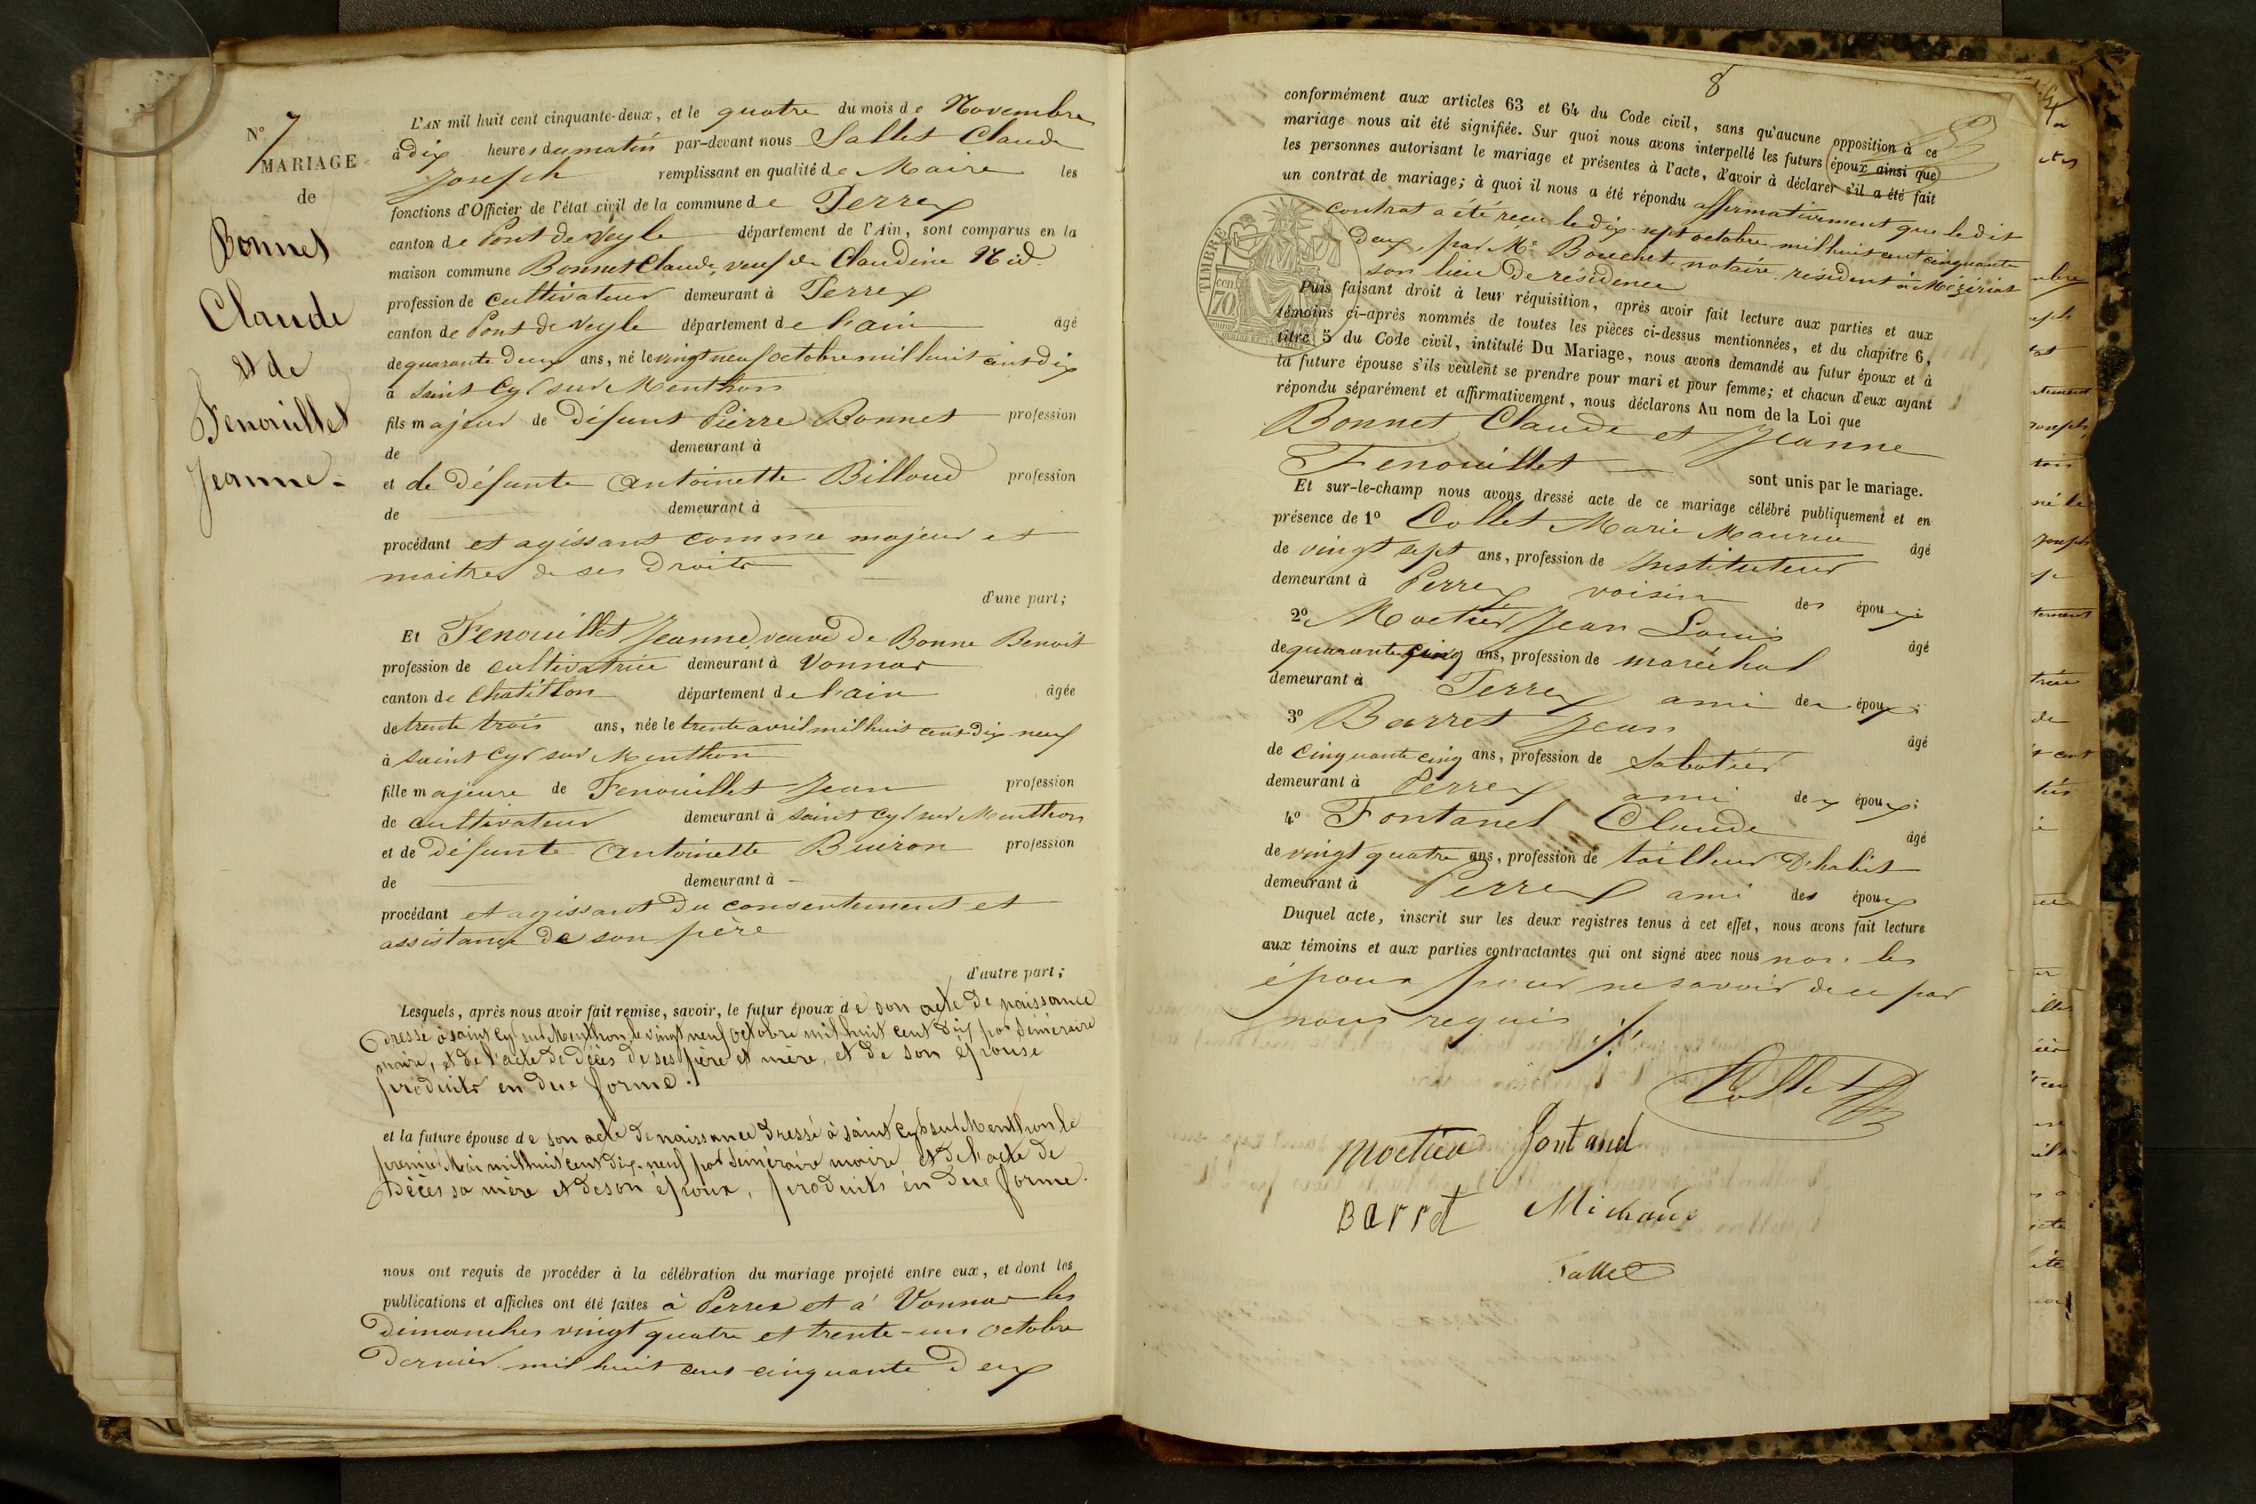 N° 7
MARIAGE
de
Bonnet
Claude
et de
Fenouillet
Jeanne.
L'AN mil huit cent cinquante-deux, et le quatre du mois de Novembre
à dix heures du matin par-devant nous Sallet Claude
Joseph remplissant en qualité de Maire les
fonctions d'Officier de l'état civil de la commune de Perrex
canton de Pont de Veyle département de l'Ain, sont comparus en la
maison commune Bonnet Claude, veuf de Claudine Nid
profession de cultivateur demeurant à Perrex
canton de Pont de Veyle département de l'ain âgé
de quarante deux ans, né le vingt neuf octobre mil huit cent dix
à Saint Cyr sur Menthon
fils majeur de défunt Pierre Bonnet profession
de demeurant à
et de défunte Antoinette Billoud profession
de demeurant à
procédant et agissant comme majeur et
maitre de ses droits
d'une part;
Et Fenouillet Jeanne, veuve de Bonne Benoit
profession de cultivatrice demeurant à Vonnas
canton de Chatillon département de l'ain âgée
de trente trois ans, née le trente avril mil huit cent dix neuf
à saint Cyr sur Menthon
fille majeure de Fenouillet Jean profession
de cultivateur demeurant à saint Cyr sur Menthon
et de défunte Antoinette Buiron profession
de demeurant à
procédant et agissant du consentement et
assistance de son père
d'autre part;
Lesquels, après nous avoir fait remise, savoir, le futur époux de son acte de naissance
dressé à saint Cyr sur Menthon le vingt neuf octobre mil huit cent dix par Féméraire
maire, et de l'acte de décès de ses père et mère, et de son épouse
produits en due forme.
et la future épouse de son acte de naissance dressé à saint Cyr sur Menthon le
premier Mai mil huit cent dix-neuf par Féméraire maire et de l'acte de
décès sa mère et de son époux, produits en due forme.
nous ont requis de procéder à la célébration du mariage projeté entre eux, et dont les
publications et affiches ont été faites à Perrex et à Vonnas les
dimanches vingt quatre et trente-un octobre
dernier mil huit cent cinquante deux
8
conformément aux articles 63 et 64 du Code civil, sans qu'aucune opposition à ce
mariage nous ait été signifiée. Sur quoi nous avons interpellé les futurs époux ainsi que
les personnes autorisant le mariage et présentes à l'acte, d'avoir à déclarer s'il a été fait
un contrat de mariage; à quoi il nous a été répondu affirmativement que le dit
contrat a été reçu le dix-sept octobre mil huit cent cinquante
deux, par Me Bouchet notaire résident à Mézériat
son lieu de résidence
TIMBRE
70 cent
Puis faisant droit à leur réquisition, après avoir fait lecture aux parties et aux
témoins ci-après nommés de toutes les pièces ci-dessus mentionnées, et du chapitre 6,
titre 5 du Code civil, intitulé Du Mariage, nous avons demandé au futur époux et à
la future épouse s'ils veulent se prendre pour mari et pour femme; et chacun d'eux ayant
répondu séparément et affirmativement, nous déclarons Au nom de la Loi que
Bonnet Claude et Jeanne
Fenouillet sont unis par le mariage.
Et sur-le-champ nous avons dressé acte de ce mariage célébré publiquement et en
présence de 1° Collet Marie Maurice âgé
de vingt sept ans, profession de Instituteur
demeurant à Perrex voisin des époux;
2° Moetier Jean Louis âgé
de quarante cinq ans, profession de maréchal
demeurant à Perrex ami des époux;
3° Barret Jean âgé
de cinquante cinq ans, profession de Sabotier
demeurant à Perrex ami des époux;
4° Fontanel Claude âgé
de vingt quatre ans, profession de tailleur d'habit
demeurant à Perrex ami des époux
Duquel acte, inscrit sur les deux registres tenus à cet effet, nous avons fait lecture
aux témoins et aux parties contractantes qui ont signé avec nous non les
époux pour ne savoir de ce par
nous requis
Collet
Moetier Fontanel
Barret Michaud
Sallet